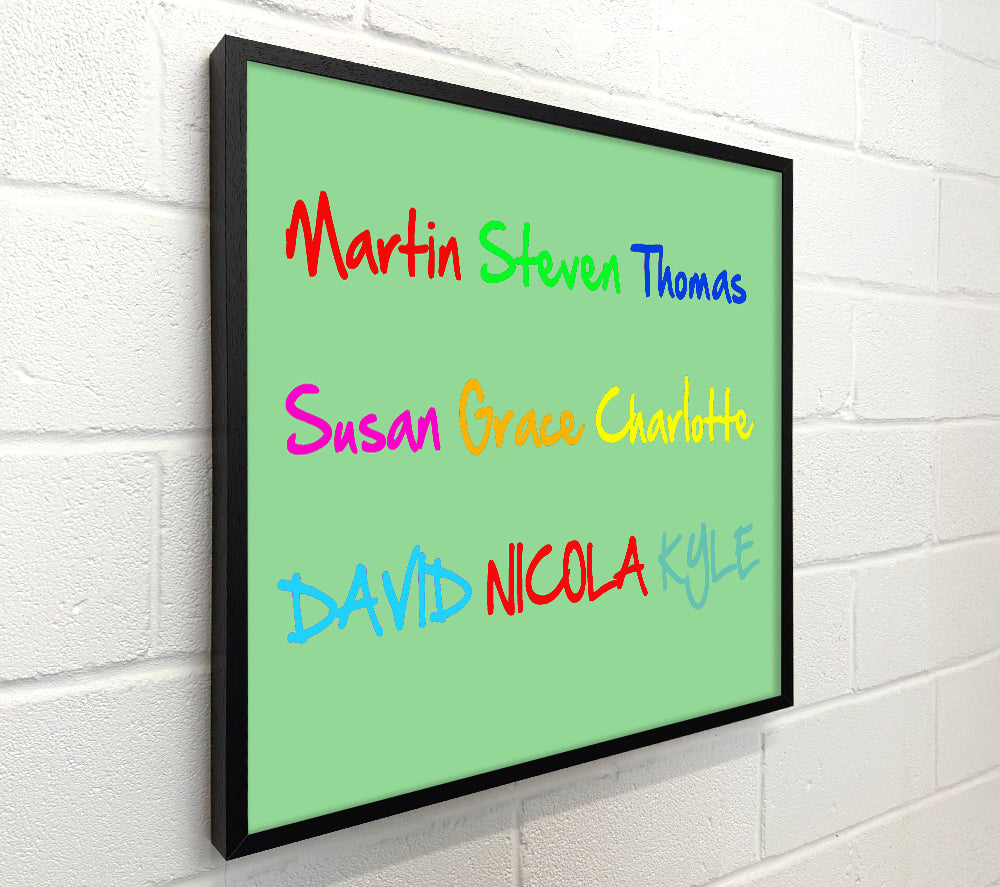 Martin Steven Thomas
Susan Grace Charlotte
DAVID NICOLA KYLE